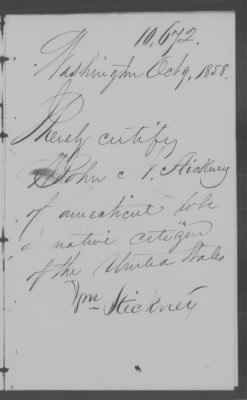 10,672.
Washington Oct 9, 1858.
I Herely certify
John N. Stickney
of onnecticut to be
a native citizen
of the United States
Wm Stickney